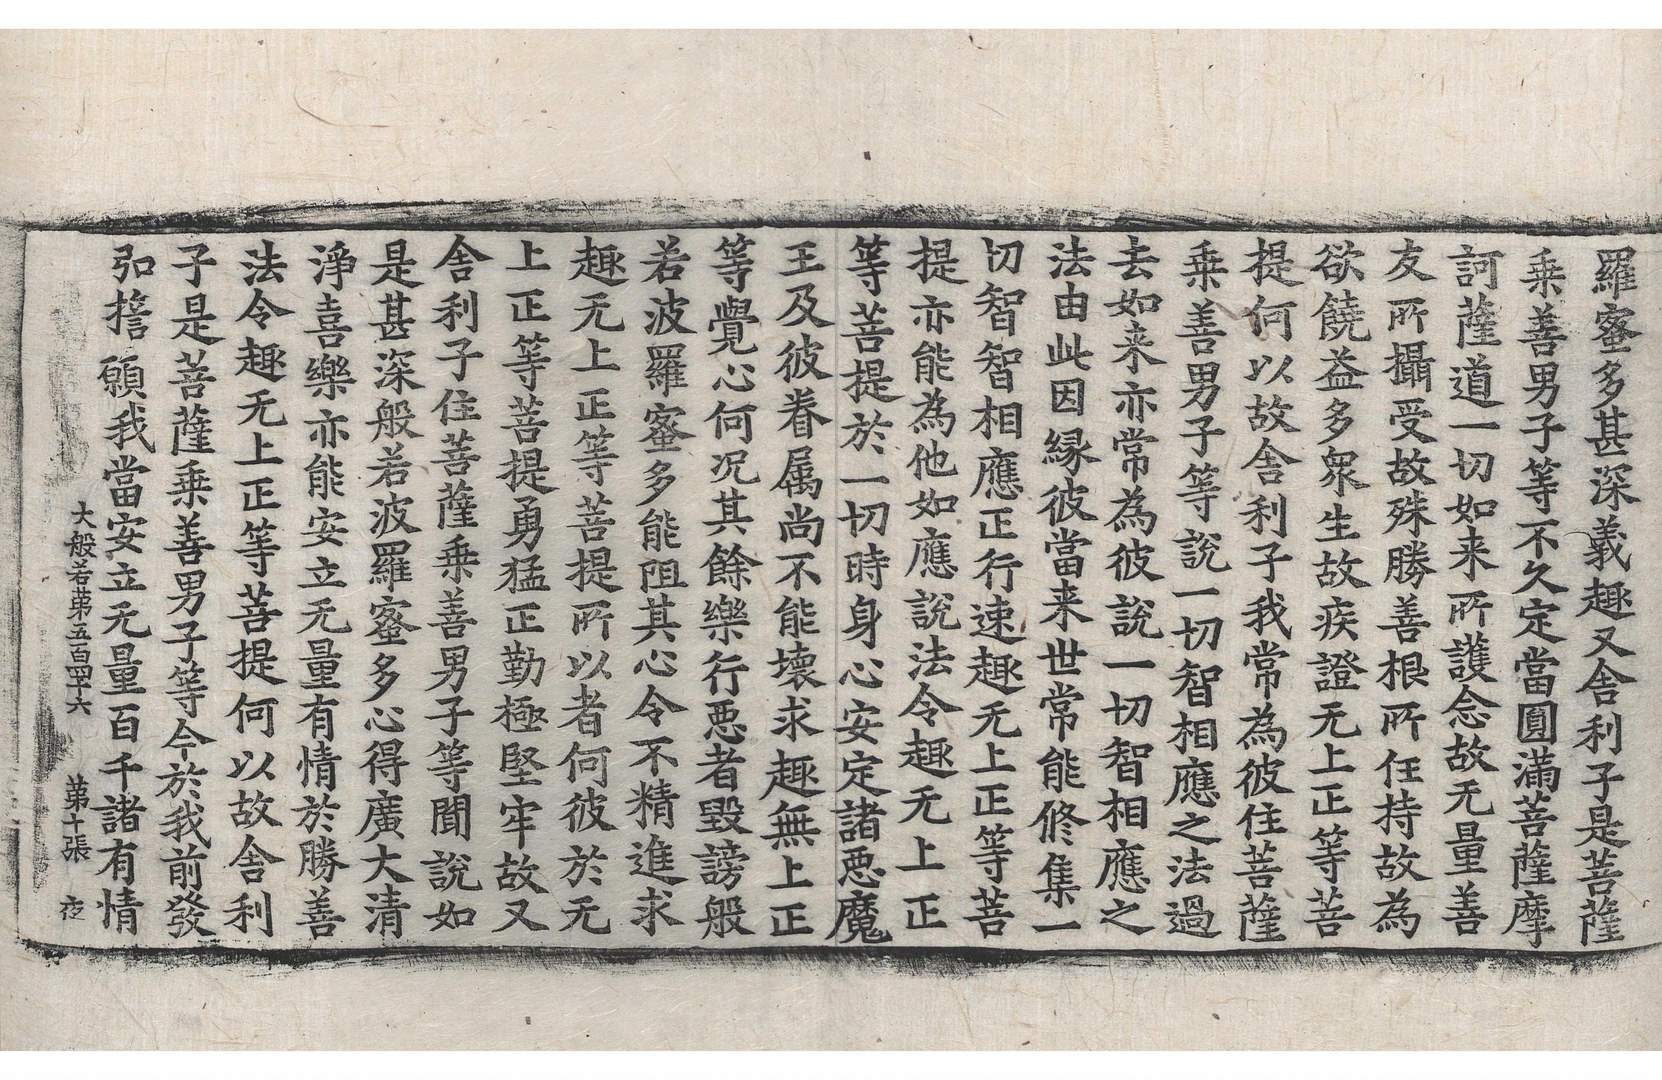 羅蜜多甚深義趣又舍利子是菩薩
乗善男子等不久定當圓滿菩薩摩
訶薩道一切如来所護念故无量善
友所攝受故殊勝善根所任持故為
欲饒益多衆生故疾證无上正等菩
提何以故舍利子我常為彼住菩薩
乗善男子等說一切智相應之法過
去如来亦常為彼說一切智相應之
法由此因緣彼當来世常能修集一
切智智相應正行速趣无上正等菩
提亦能為他如應說法令趣无上正
等菩提於一切時身心安定諸惡魔
王及彼眷属尚不能壞求趣無上正
等覺心何况其餘樂行惡者毀謗般
若波羅蜜多能阻其心令不精進求
趣无上正等菩提所以者何彼於无
上正等菩提勇猛正勤極堅牢故又
舍利子住菩薩乗善男子等聞說如
是甚深般若波羅蜜多心得廣大清
淨喜樂亦能安立无量有情於勝善
法令趣无上正等菩提何以故舍利
子是菩薩乗善男子等今於我前發
弘擔願我當安立无量百千諸有情
大般若第五百四十六　第十張　夜